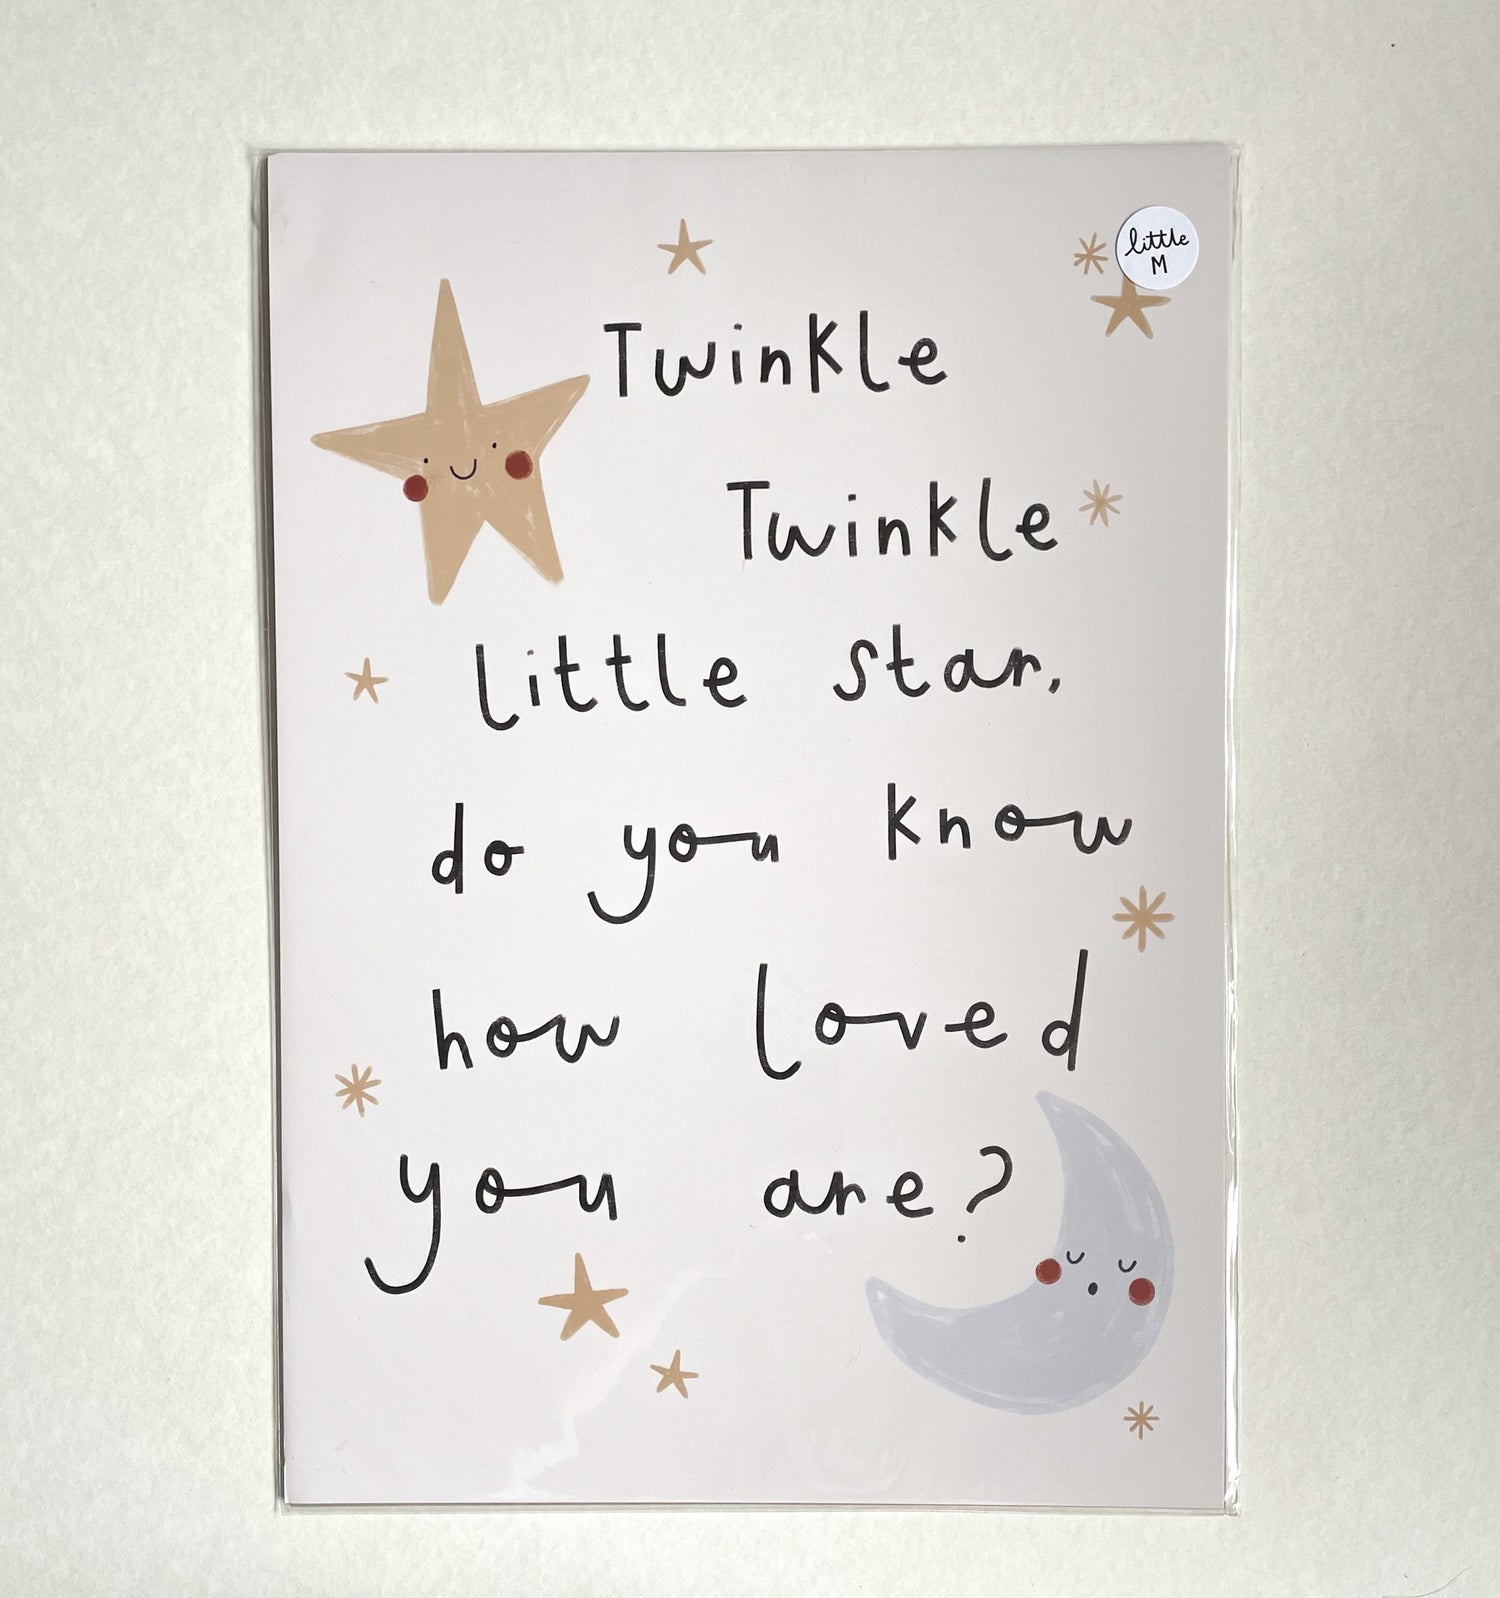 little
M
Twinkle
Twinkle
little star,
do you know
how loved
you are?